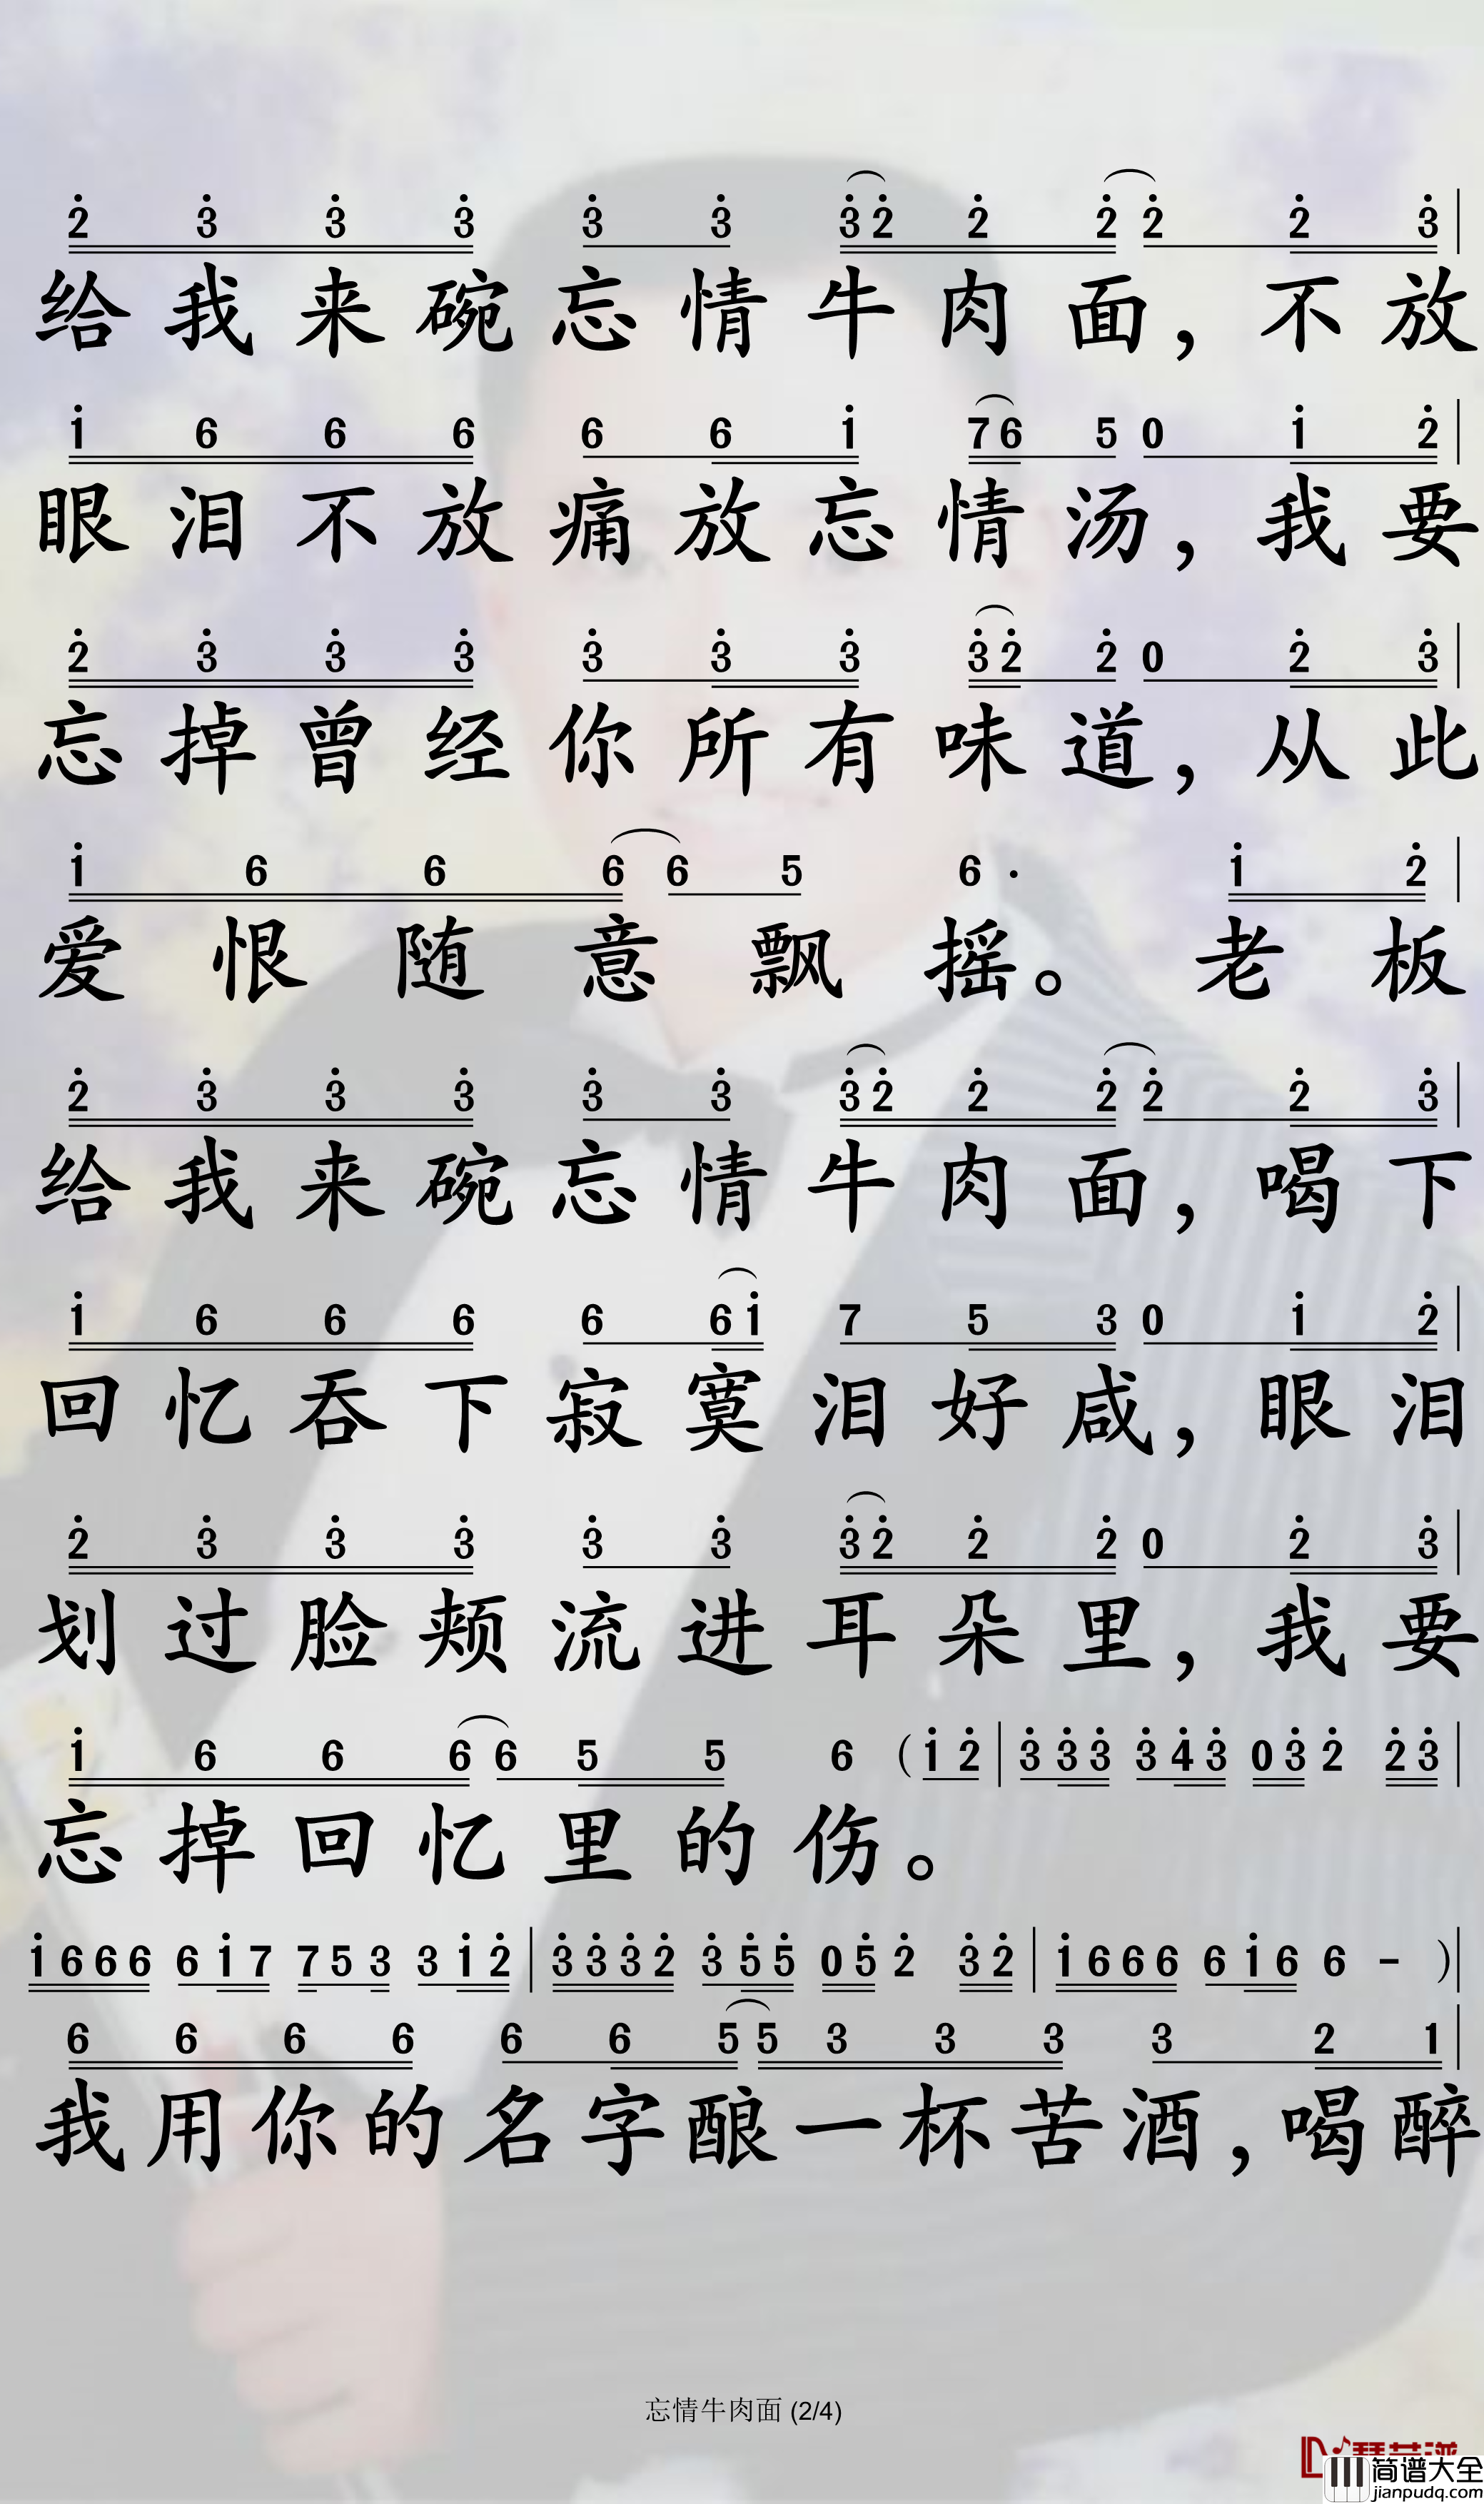 2̇ 3̇ 3̇ 3̇ 3̇ 3̇ 3̇ 2̇ 2̇ 2̇ 2̇ 2̇ 3̇ |
给我来碗忘情牛肉面，不放
1̇ 6 6 6 6 6 1̇ 7 6 5 0 1̇ 2̇ |
眼泪不放痛放忘情汤，我要
2̇ 3̇ 3̇ 3̇ 3̇ 3̇ 3̇ 3̇ 2̇ 2̇ 0 2̇ 3̇ |
忘掉曾经你所有味道，从此
1̇ 6 6 6 6 5 6 · 1̇ 2̇ |
爱恨随意飘摇。老板
2̇ 3̇ 3̇ 3̇ 3̇ 3̇ 3̇ 2̇ 2̇ 2̇ 2̇ 2̇ 3̇ |
给我来碗忘情牛肉面，喝下
1̇ 6 6 6 6 6 1̇ 7 5 3 0 1̇ 2̇ |
回忆吞下寂寞泪好咸，眼泪
2̇ 3̇ 3̇ 3̇ 3̇ 3̇ 3̇ 2̇ 2̇ 2̇ 0 2̇ 3̇ |
划过脸颊流进耳朵里，我要
1̇ 6 6 6 6 5 5 6 (1̇ 2̇ | 3̇ 3̇ 3̇ 3̇ 4̇ 3̇ 0 3̇ 2̇ 2̇ 3̇ |
忘掉回忆里的伤。
1̇ 6 6 6 6 1̇ 7 7 5 3 3 1̇ 2̇ | 3̇ 3̇ 3̇ 2̇ 3̇ 5̇ 5̇ 0 5̇ 2̇ 3̇ 2̇ | 1̇ 6 6 6 6 1̇ 6 6 - )|
6 6 6 6 6 6 5 5 3 3 3 3 2 1 |
我用你的名字酿一杯苦酒，喝醉
忘情牛肉面 (2/4)
简谱大全
jianpudq.com